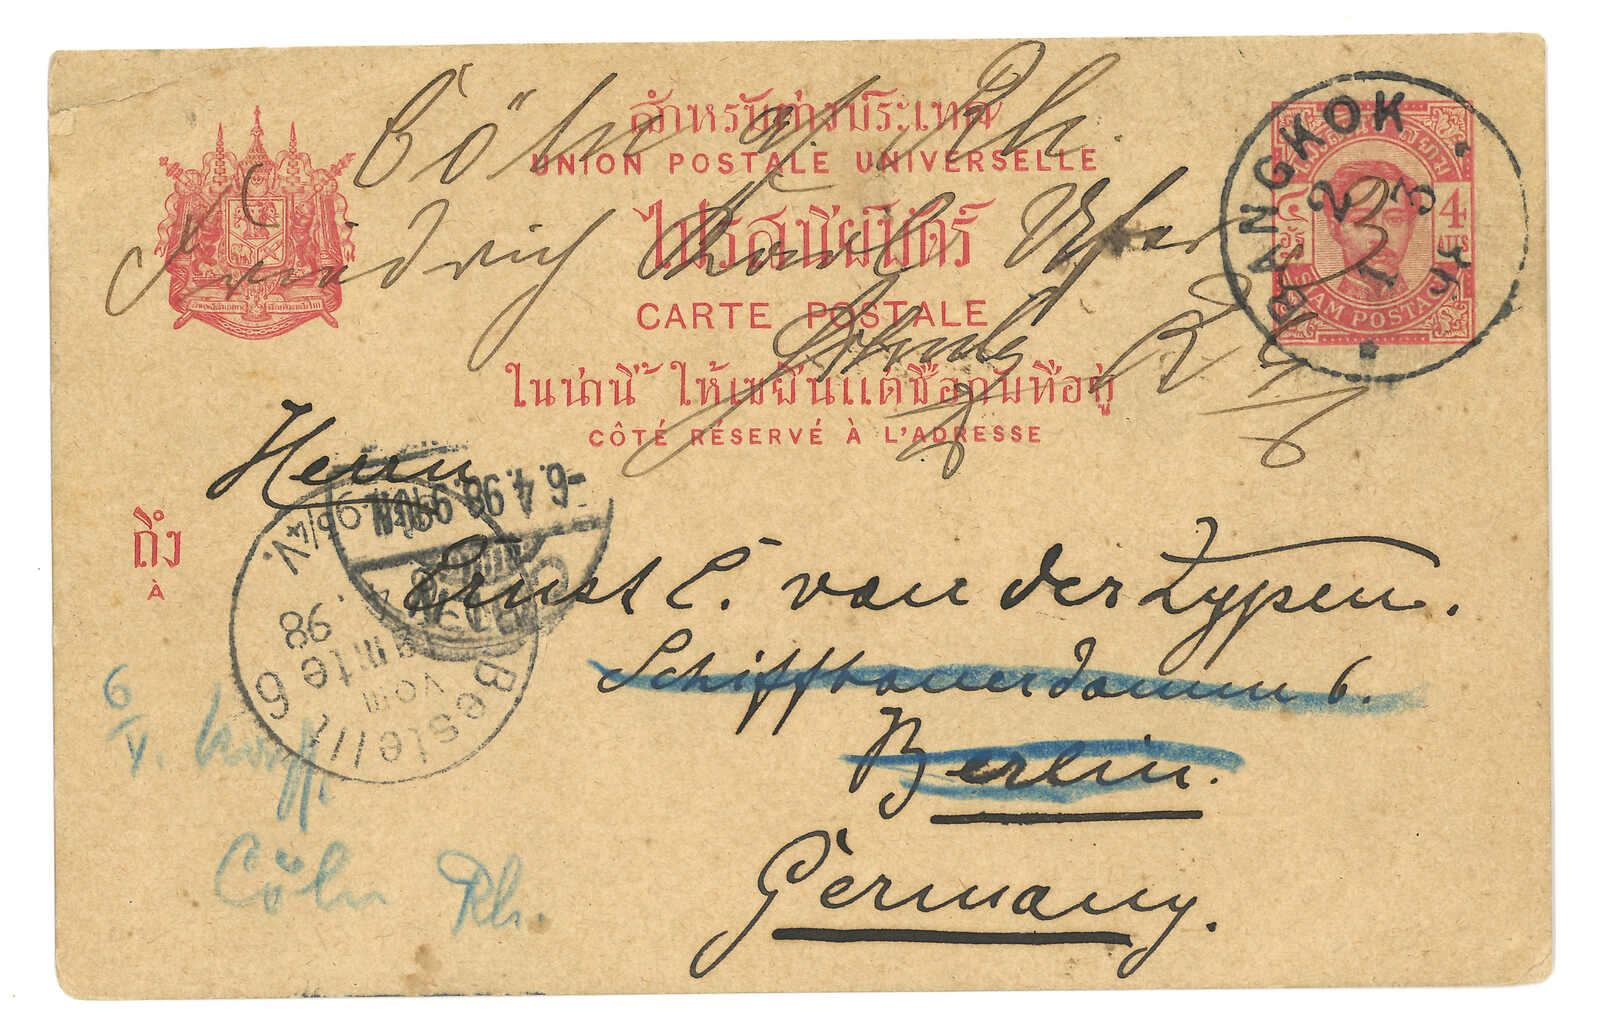 Cöln a/ Rh.
สำหรับต่างประเทศ
UNION POSTALE UNIVERSELLE
Friedrich Carl Ufer
ไปรสนียบัตร์
CARTE POSTALE
ในน่านี้ ให้เขียนแต่ชื่อกับที่อยู่
CÔTÉ RÉSERVÉ À L'ADRESSE
BANGKOK
2
3
1
4
ATTS
SIAM POSTAGE
Herrn
-6.4.98.9-10N.
ถึง
A
Ernst C. van der Zypen.
Schiffbauerdamm 6.
Berlin.
Germany.
Bestellt
vom
Postamte 6
98
6/4 98
V.
6/V.
Cöln Rh.